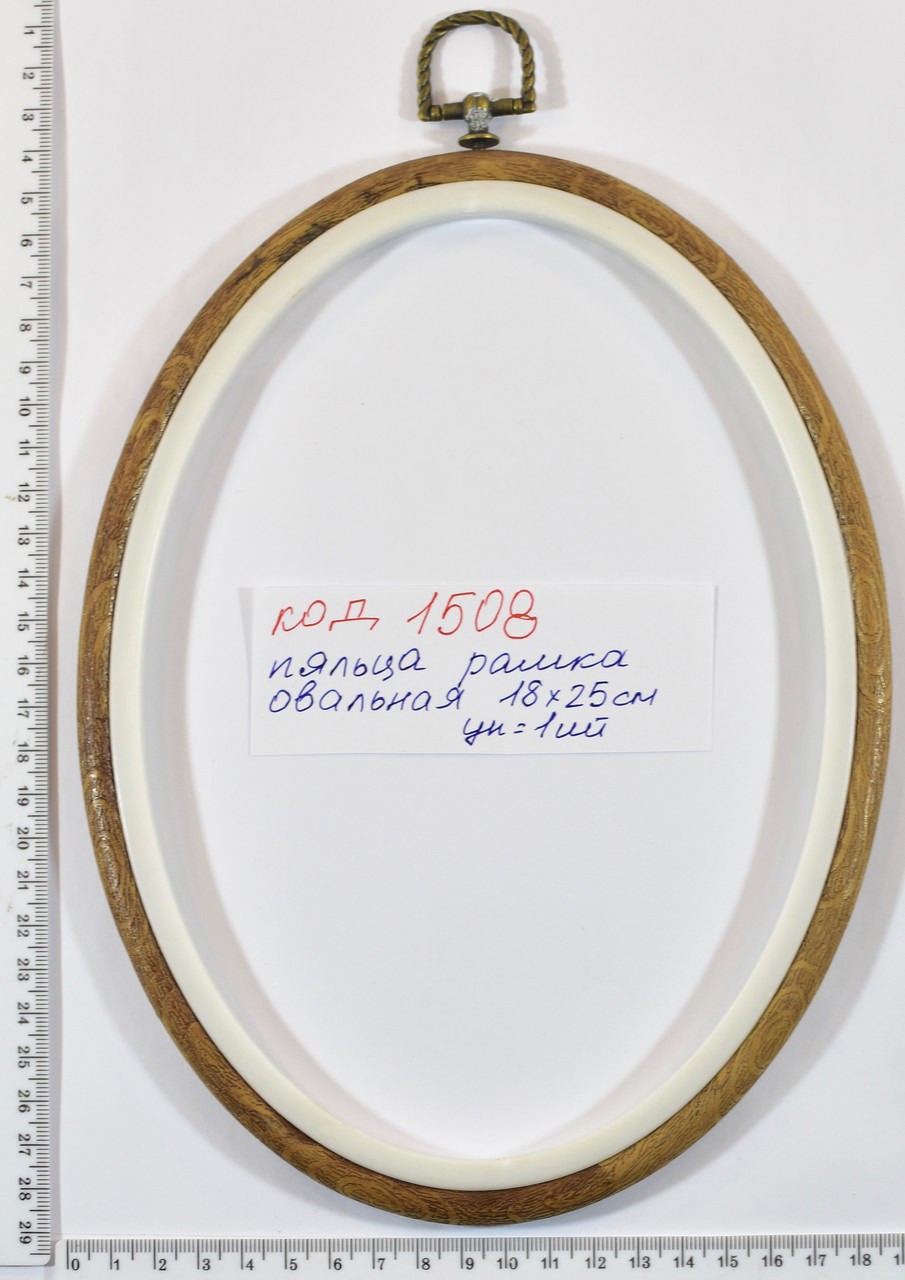 1
2
3
4
5
6
7
8
9
10
11
12
13
14
15
16
17
18
19
20
21
22
23
24
25
26
27
28
29
код 1508
пяльца рамка
овальная 18х25см
уп=1шт
0 1 2 3 4 5 6 7 8 9 10 11 12 13 14 15 16 17 18